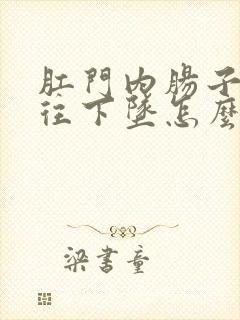 肛門內腸子
往下墜怎麼
梁書童